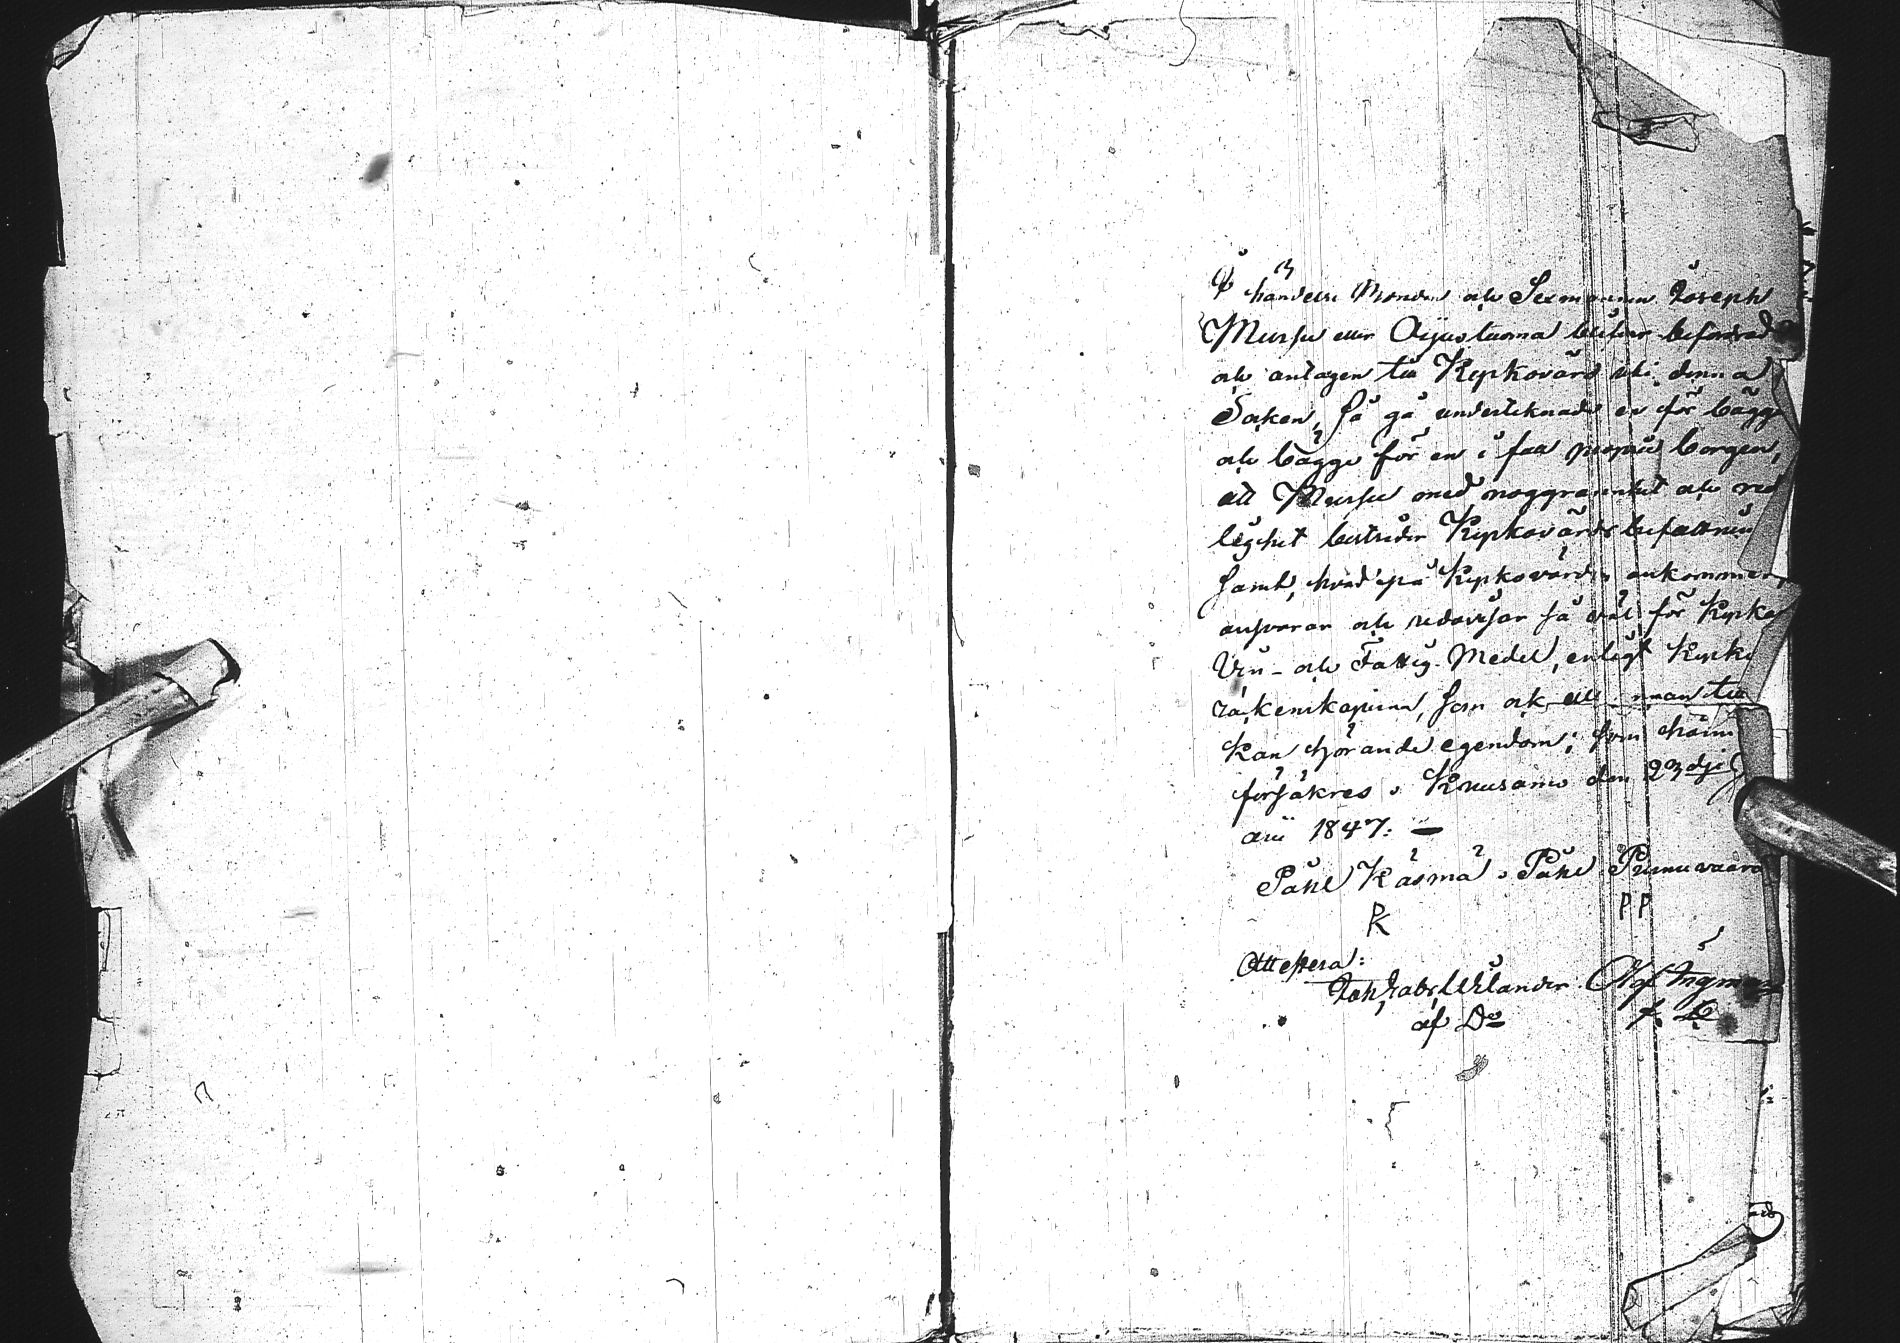 I händelse Bonden och Sexmannen Joseph
Mursu eller Ojustuoma blifver befordrad
och antagen till Kyrkovärd uti denna
Socken, så gå undertecknade en för bägge
och bägge för en i full proprie borgen,
att Mursu med noggrannhet och red
lighet bestrider Kyrkovärds befattnin
samt, hvad på Kyrkovärden ankommer,
ansvarar och redovisar så väl för Kyrko
Vin- och Fattig-Medel, enligt Kyrko
räkenskaperne, som ock
Kan hörande egendom; som härm
försäkres, Kuusamo den 23dje
1847: —
Påhl Käsmä, Påhl Pirnuvaara
PK PP
Attestera:
Joh. Gabr. Uhlander. Olof Ingman
af Do f. Do